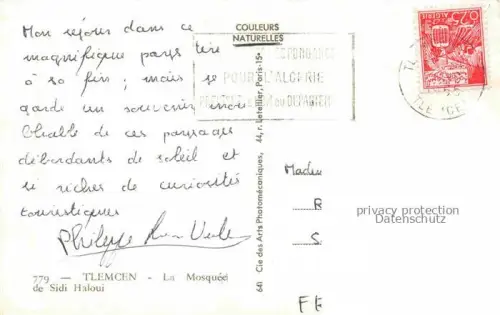 Mon séjour dans ce
magnifique pays tire
à sa fin ; mais je
garde un souvenir inou
bliable de ces paysages
débordants de soleil et
si riches de curiosités
touristiques
Philippe
779 — TLEMCEN - La Mosquée
de Sidi Haloui
COULEURS
NATURELLES
POUR L'ALGERIE
641 Cie des Arts Photomécaniques, 44, r. Letellier, Paris-15e
Madem
R
S
FR
privacy protection
Datenschutz